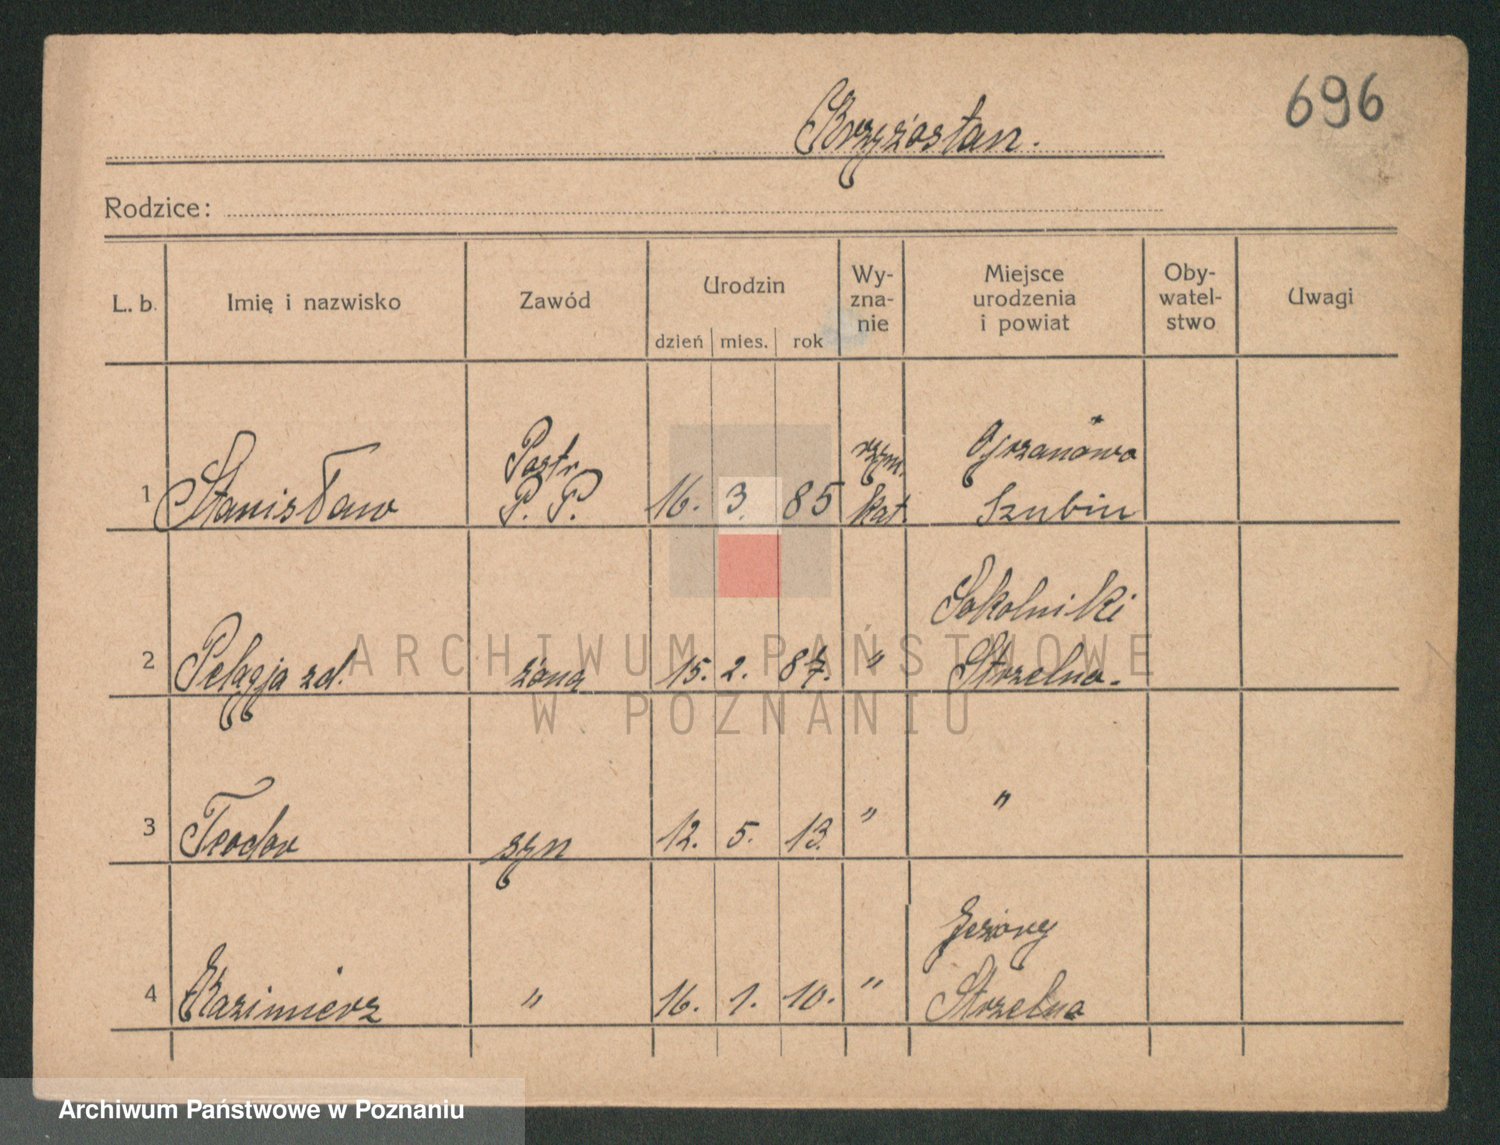 696
Krzyżostan.
Rodzice:
L. b. Imię i nazwisko Zawód Urodzin Wy-zna-nie Miejsce urodzenia i powiat Oby-watel-stwo Uwagi
dzień mies. rok
1 Stanisław P. P. 16. 3. 85 rzym. kat. Szubin
2 Pelagja zd. żona 15. 2. 87. " Sokolniki Strzelno.
3 Teodor syn 12. 5. 13. " "
4 Kazimierz " 16. 1. 10. " Jeziory Strzelno
ARCHIWUM PAŃSTWOWE
W POZNANIU
Archiwum Państwowe w Poznaniu